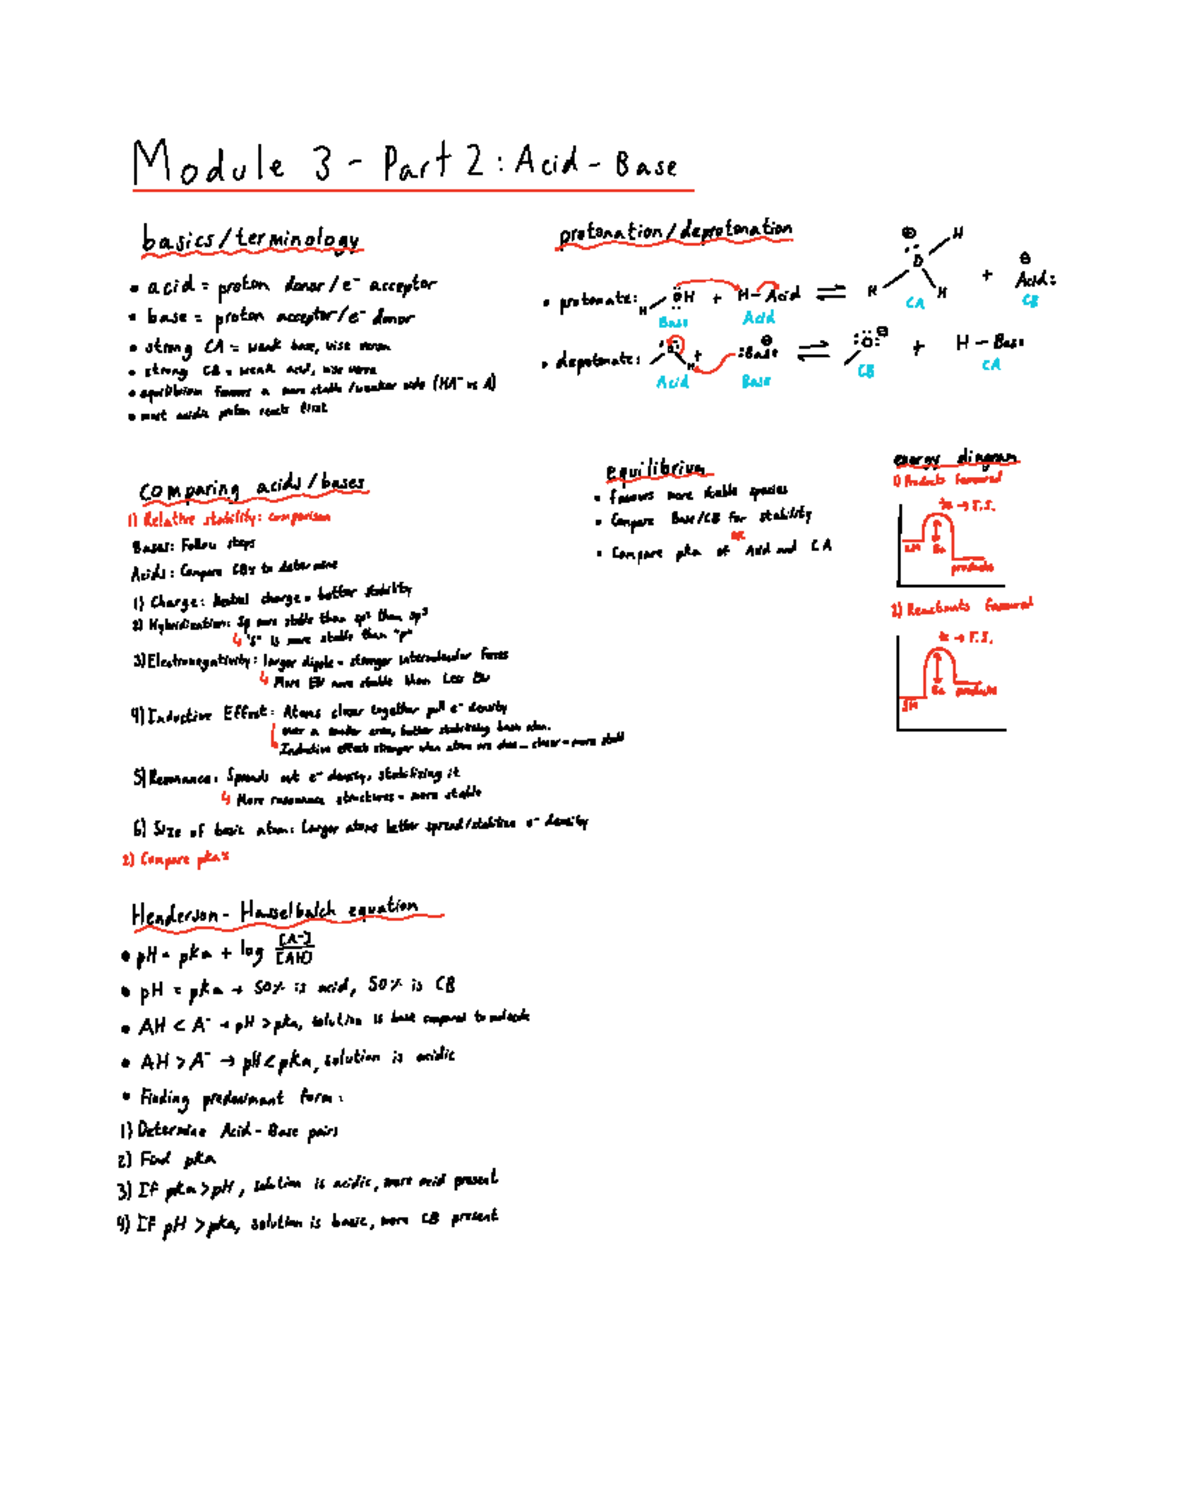 Module 3 - Part 2 : Acid - Base
basics / terminology
• acid = proton donor / e⁻ acceptor
• base = proton acceptor / e⁻ donor
• strong CA = weak base, vise versa
• strong CB = weak acid, vise versa
• equilibrium favours a more stable / weaker side (HA⁻ vs A)
• most acidic proton reacts first
protonation / deprotonation
• protonate: H OH + H - Acid ⇌ H H H ⊕ + Acid: ⊖
Base Acid CA CB
• deprotonate: H + :Base ⊖ ⇌ :O: ⊖ + H - Base
Acid Base CB CA
comparing acids / bases
1) Relative stability: comparison
Bases: Follow steps
Acids: Compare CBs to determine
1) Charge: Neutral charge = better stability
2) Hybridization: Sp more stable than sp² than sp³
↳ "s" is more stable than "p"
3) Electronegativity: larger dipole = stronger intermolecular forces
↳ More EN more stable than Less EN
4) Inductive Effect: Atoms closer together pull e⁻ density
over a smaller area, better stabilizing basic atom.
↳ Inductive effect stronger when atoms are close... closer = more stable
5) Resonance: Spreads out e⁻ density, stabilizing it
↳ More resonance structures = more stable
6) Size of basic atom: Larger atoms better spread/stabilize e⁻ density
2) Compare pkas
equilibrium
• favours more stable species
• Compare Base/CB for stability
OR
• Compare pka of Acid and CA
energy diagram
1) Products favoured
→ T.S.
SM Ea products
2) Reactants favoured
→ T.S.
SM Ea products
Henderson - Hasselbalch equation
• pH = pka + log [A⁻]/[AH]
• pH = pka → 50% is acid, 50% is CB
• AH < A⁻ → pH > pka, solution is basic compared to molecule
• AH > A⁻ → pH < pka, solution is acidic
• Finding predominant form:
1) Determine Acid - Base pairs
2) Find pka
3) If pka > pH, solution is acidic, more acid present
4) If pH > pka, solution is basic, more CB present